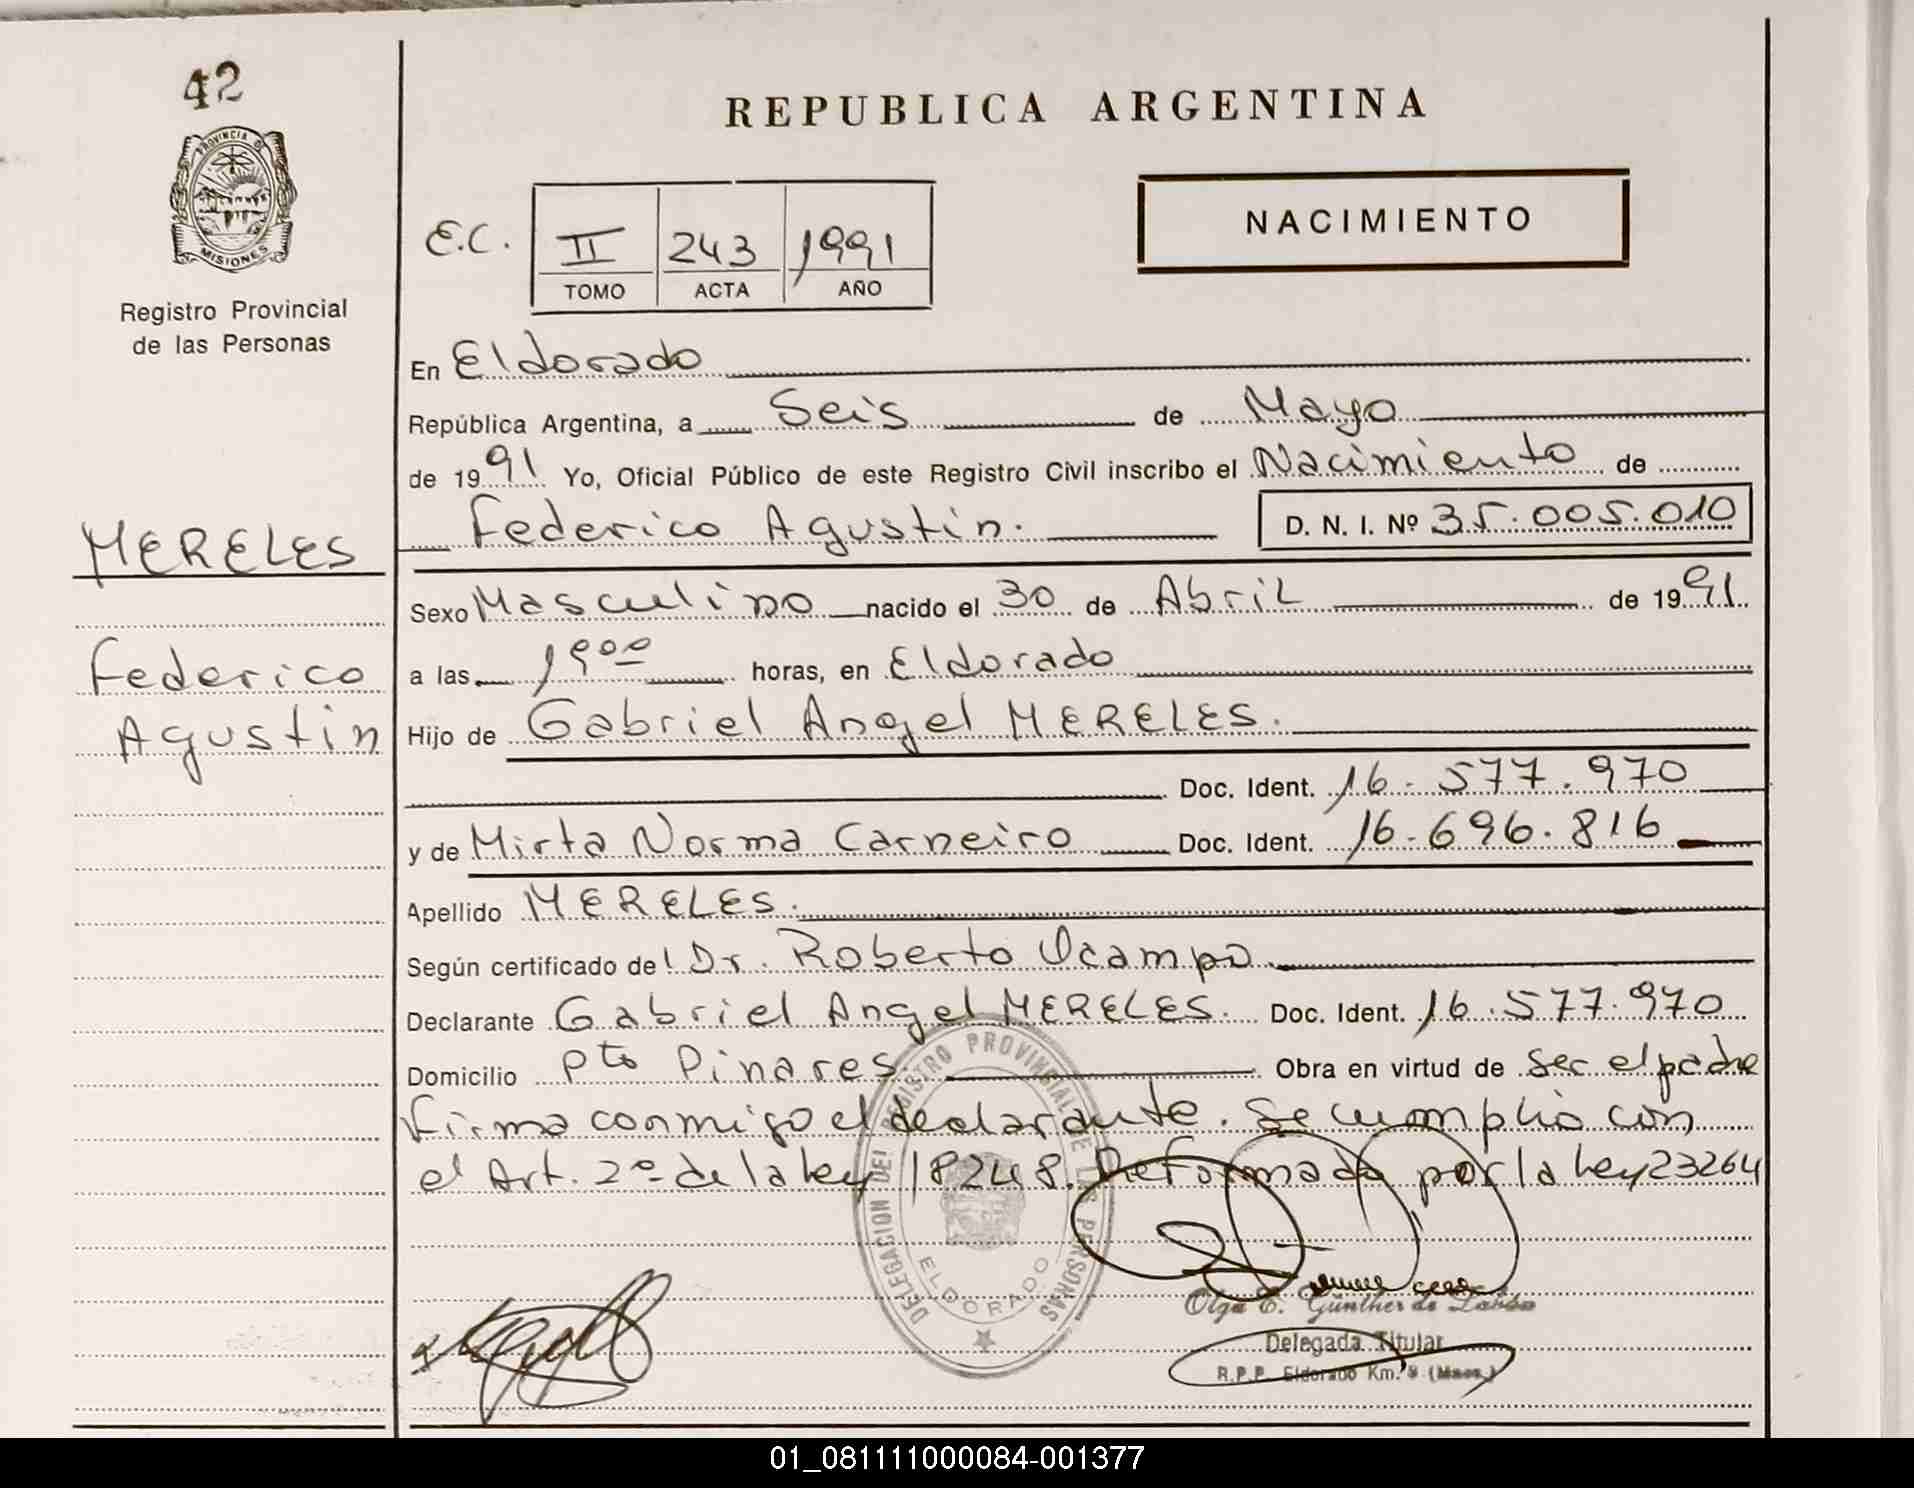 42
PROVINCIA D
MISIONES
Registro Provincial
de las Personas
MERELES
Federico
Agustin
REPUBLICA ARGENTINA
E.C.
II 243 1991
TOMO ACTA AÑO
NACIMIENTO
En Eldorado
República Argentina, a Seis de Mayo
de 1991 Yo, Oficial Público de este Registro Civil inscribo el Nacimiento de
Federico Agustin. D. N. I. Nº 35.005.010
Sexo Masculino nacido el 30 de Abril de 1991
a las 19⁰⁰ horas, en Eldorado
Hijo de Gabriel Angel MERELES.
Doc. Ident. 16.577.970
y de Mirta Norma Carneiro Doc. Ident. 16.696.816
Apellido MERELES.
Según certificado del Dr. Roberto Ocampo
Declarante Gabriel Angel MERELES. Doc. Ident. 16.577.970
Domicilio Pto Pinares Obra en virtud de ser el padre
Firma conmigo el declarante. Se cumplió con
el Art. 2º de la ley 18248. Reformada por la ley 23264
DELEGACION DEL REGISTRO PROVINCIAL DE LAS PERSONAS
ELDORADO
Olga E. Günther de
Delegada Titular
R.P.P. Eldorado Km. 9 (Mnes.)
01_081111000084-001377